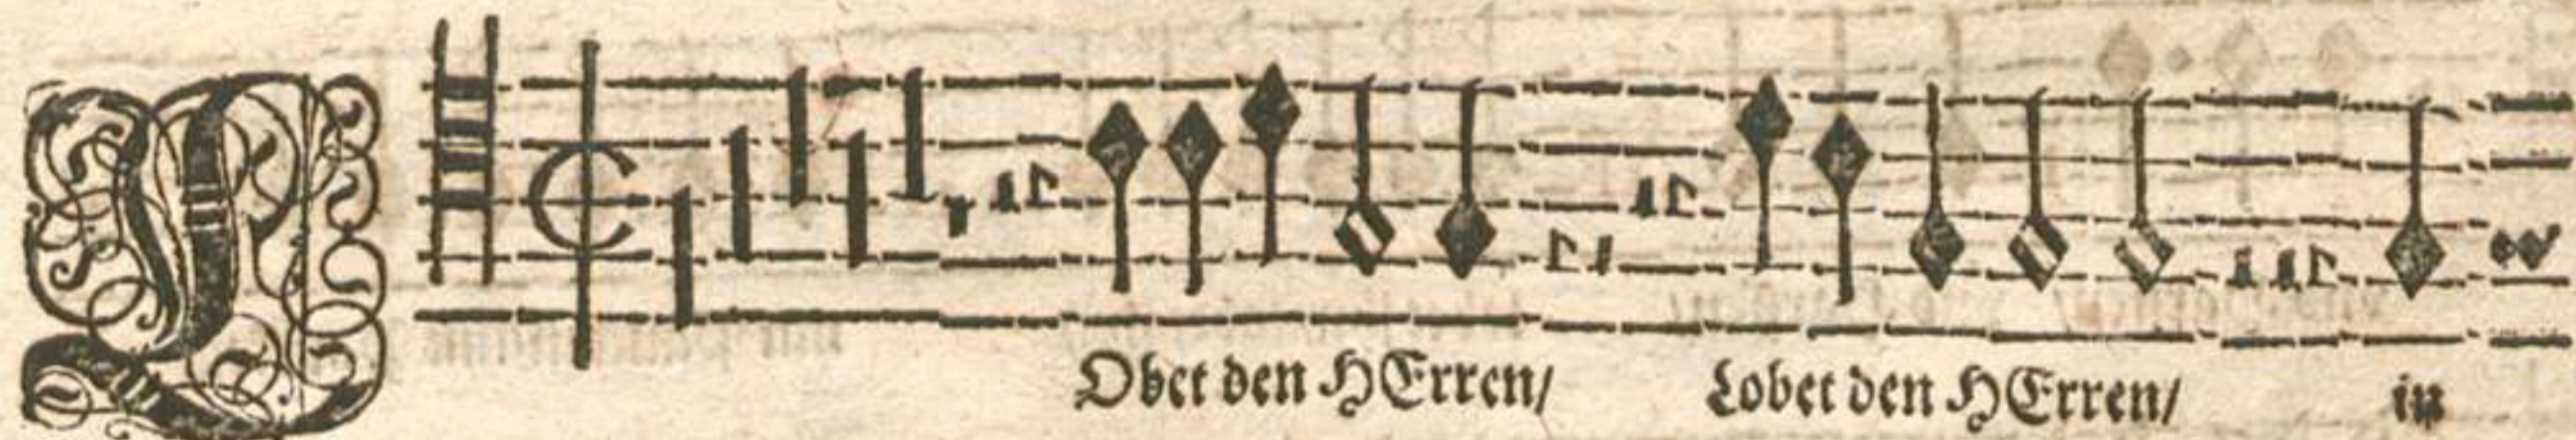 LObet den HErren/ Lobet den HErren/ in